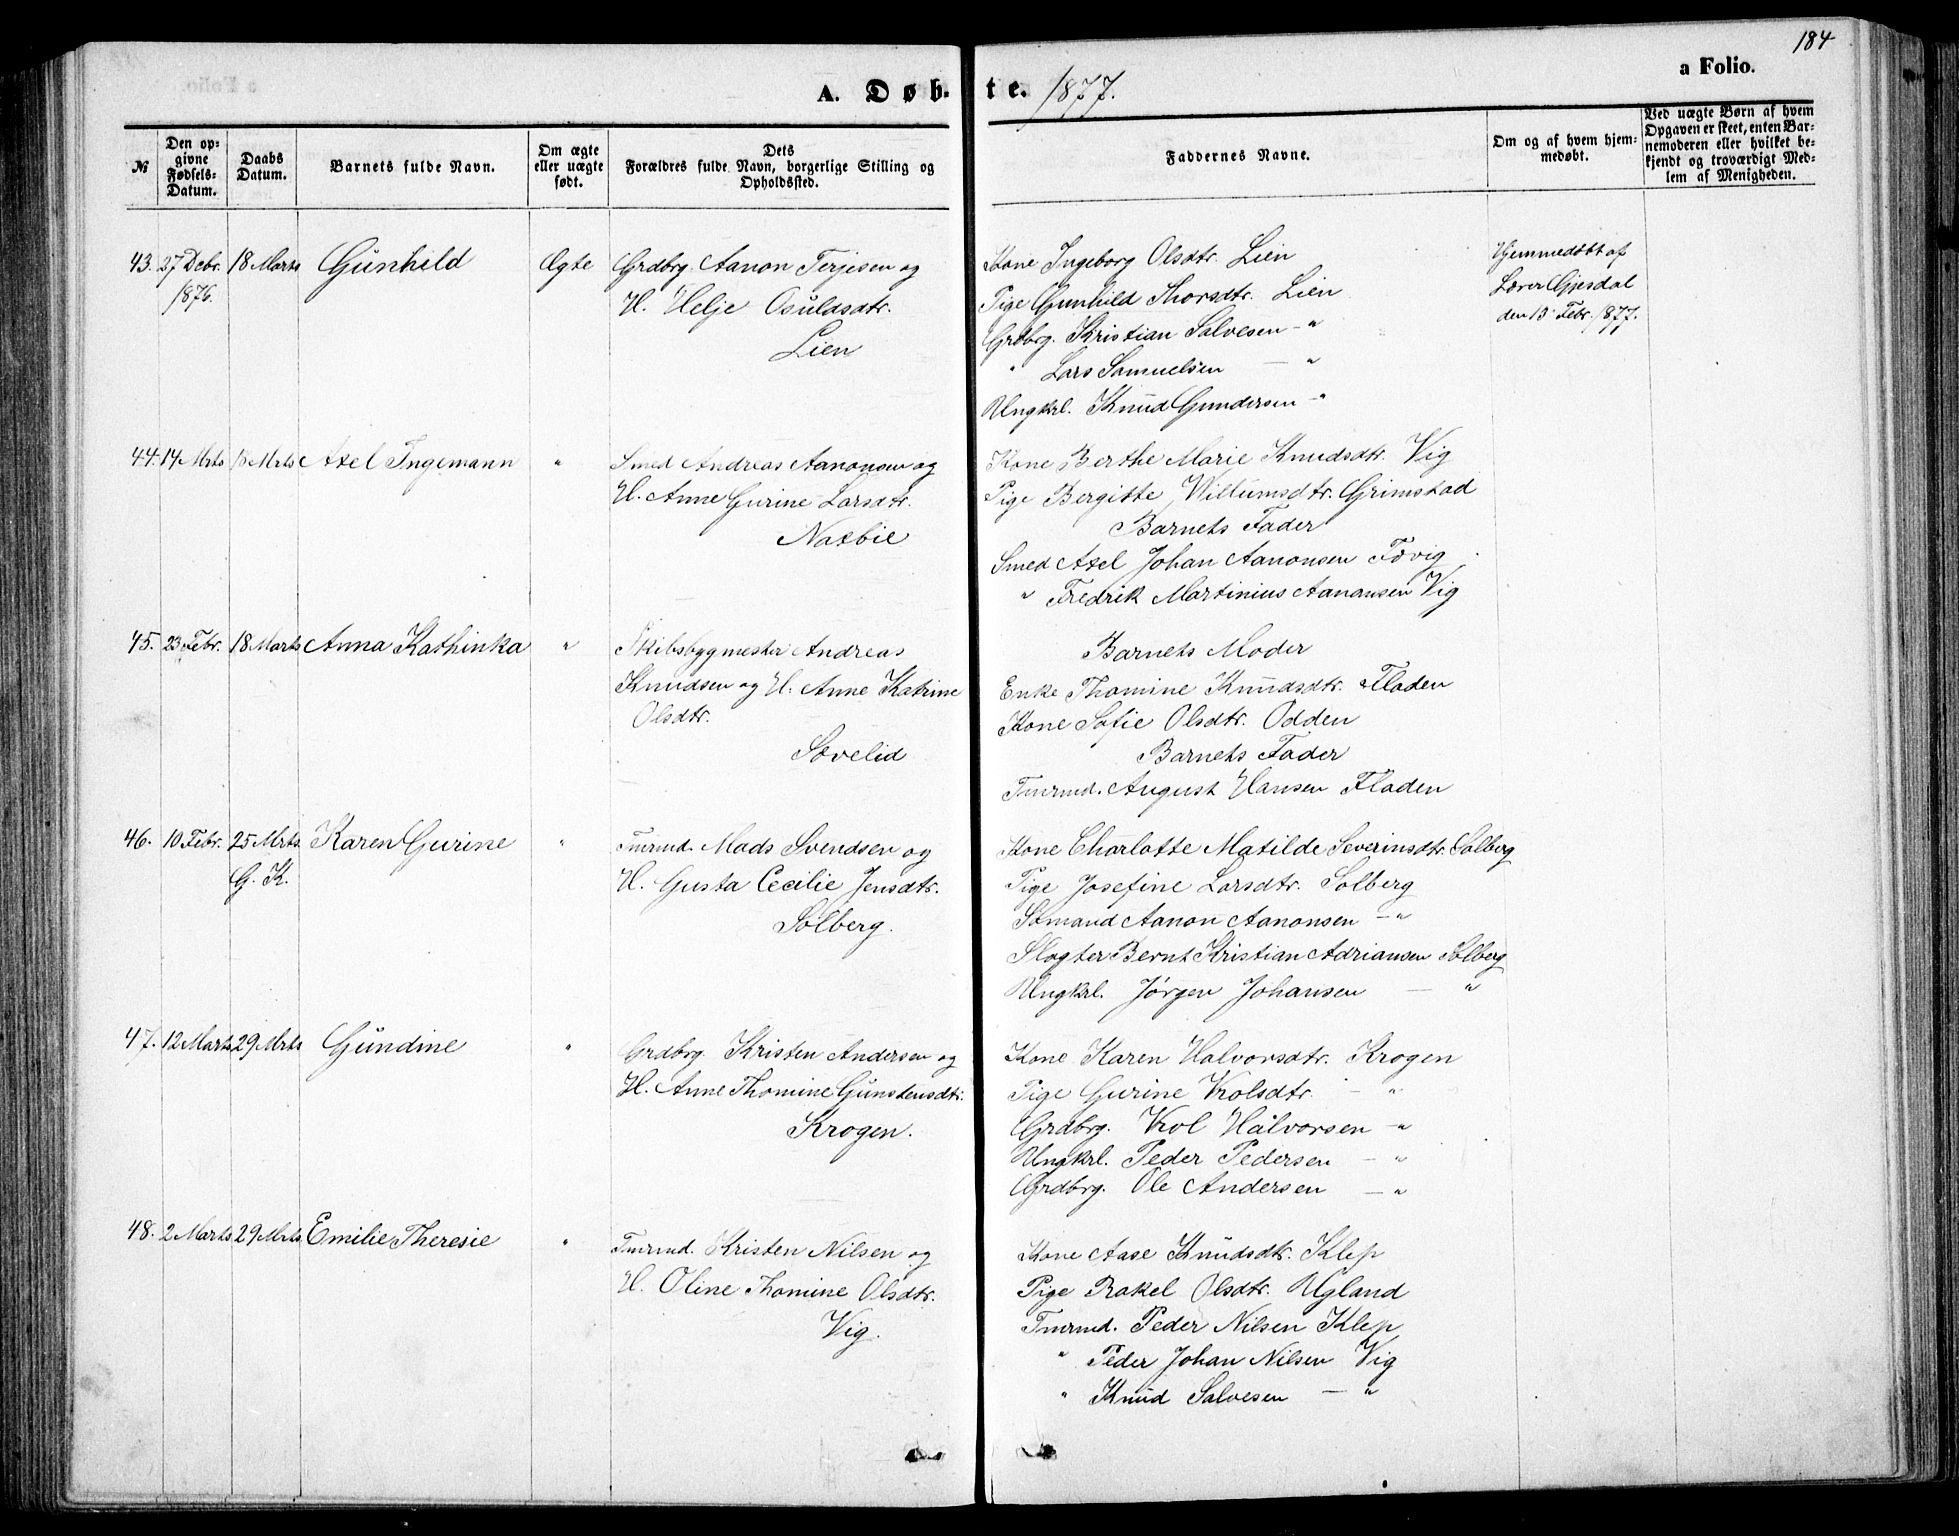 184
a Folio.
A. Døb-te. 1877.
№
Den opgivne Fødsels-Datum.
Daabs Datum.
Barnets fulde Navn.
Om ægte eller uægte født.
Dets Forældres fulde Navn, borgerlige Stilling og Opholdssted.
Faddernes Navne.
Om og af hvem hjemmedøbt.
Ved uægte Børn af hvem Opgaven er skeet, enten Barnemoderen eller hvilket bekjendt og troværdigt Medlem af Menigheden.
43. 27 Decbr. 1876. 18 Marts Gunhild Ægte
Grdbrg. Aanon Terjesen og
H. Helje Osuldsdtr.
Lien
Kone Ingeborg Olsdtr. Lien
Pige Gunhild Thorsdtr. Lien
Grdbrg. Kristian Salvesen – "
" Lars Samuelsen — "
Ungkrl. Knud Gundersen – "
Hjemmedøbt af
Lærer Gjesdal
den 13 Febr. 1877.
44. 14 Mrts 18 Mrts Axel Ingemann "
Smed Andreas Aanonsen og
H. Anne Gurine Larsdtr.
Naxbie
Kone Berthe Marie Knudsdtr. Vig
Pige Bergitte Willumsdtr. Grimstad
Barnets Fader
Smed Axel Johan Aanonsen Fævig
" Fredrik Martinius Aanonsen Vig
45. 23 Febr. 18 Marts Anna Kathinka "
Skibsbygmester Andreas
Knudsen og H. Anne Katrine
Olsdtr.
Sævelid
Barnets Moder
Enke Thomine Knudsdtr. Fladen
Kone Sofie Olsdtr. Odden
Barnets Fader
Tmrmd. August Hansen Fladen
46. 10 Febr. 25 Mrts. G. K. Karen Gurine "
Tmrmd. Mads Svendsen og
H. Gusta Cecilie Jensdtr.
Solberg.
Kone Charlotte Matilde Severinsdtr. Solberg
Pige Josefine Larsdtr. Solberg
Sømand Aanon Aanonsen – "
Slagter Bernt Kristian Adriansen Solberg
Ungkrl. Jørgen Johansen — "
47. 12 Marts 29 Mrts Gundine "
Grdbrg. Kristen Andersen og
H. Anne Thomine Gunstensdtr.
Krogen.
Kone Karen Halvorsdtr. Krogen
Pige Gurine Vrolsdtr. — "
Grdbrg. Vrol Halvorsen – "
Ungkrl. Peder Pedersen – "
Grdbrg. Ole Andersen — "
48. 2 Marts 29 Mrts. Emilie Theresie "
Tmrmd. Kristen Nilsen og
H. Oline Thomine Olsdtr.
Vig.
Kone Aase Knudsdtr. Klep
Pige Rakel Olsdtr. Ugland
Tmrmd. Peder Nilsen Klep
" Peder Johan Nilsen Vig
" Knud Salvesen — "